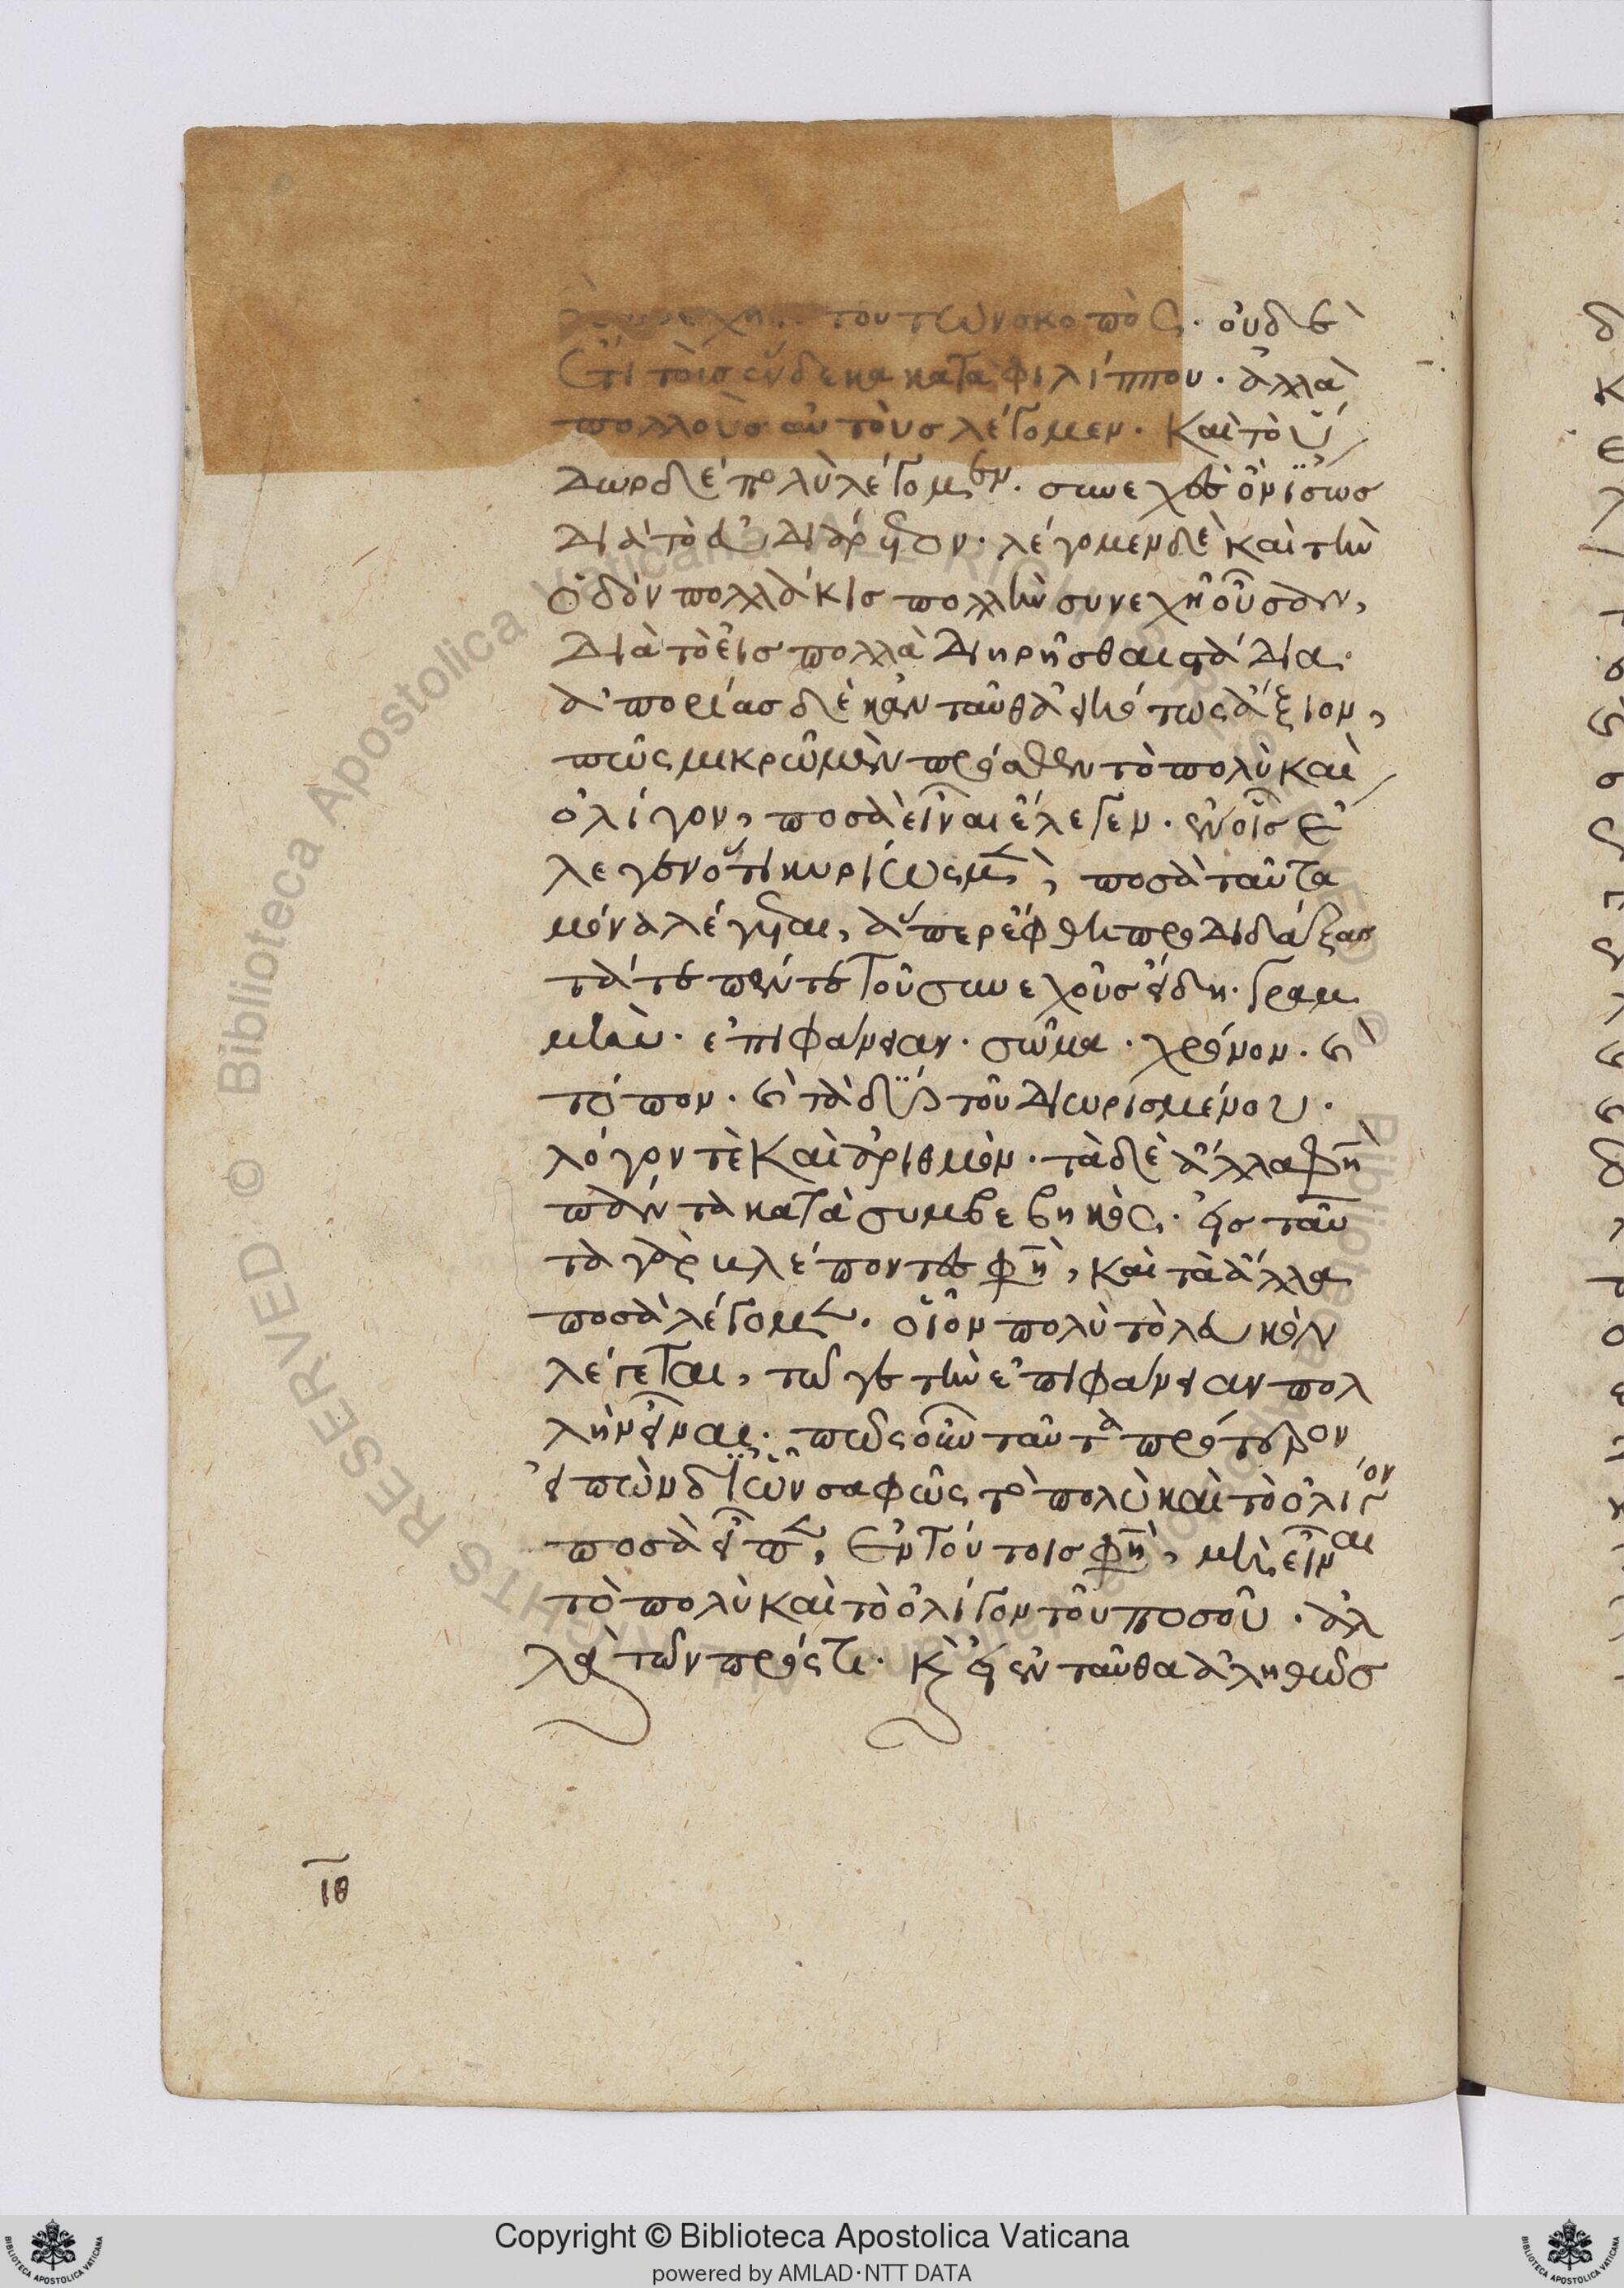 τούτων σκοπὸς. οὐδὲ
ἔτι τοῖσ ἕνδεκα κατὰ φιλίππου. ἀλλὰ
πολλοὺσ αὐτοὺσ λέγομεν. καὶ τὸ ὕ
δωρ δὲ πολὺ λέγομεν. συνεχὲσ ὂν ἴσωσ
διὰ τὸ εὐδιαίρετον. λέγομεν δὲ καὶ τὴν
ὁδὸν πολλάκισ πολλὴν συνεχῆ οὖσαν,
διὰ τὸ εἰσ πολλὰ διηρῆσθαι στάδια.
ἀπορίασ δὲ κἀνταῦθα εἰκότως ἄξιον,
πῶς μικρῶ μὲν πρόσθεν τὸ πολὺ καὶ
ὀλίγον, ποσὰ εἶναι ἔλεγεν. ἐν οἷσ ἔ
λεγεν ὅτι κυρίως μὲν, ποσὰ ταῦτα
μόνα λέγεται, ἅπερ ἔφθη προδιδάξασ
τά τε πέντε τοῦ συνεχοῦσ εἴδη. γραμ
μὴν. ἐπιφάνειαν. σῶμα. χρόνον. καὶ
τόπον. καὶ τὰ δύο τοῦ διωρισμένου.
λόγον τὲ καὶ ἀριθμὸν. τὰ δὲ ἄλλα φησὶ
πάντα κατὰ συμβεβηκὸς. εἰσ ταῦ
τα γὰρ βλέποντεσ φησὶ, καὶ τὰ ἄλλα
ποσὰ λέγομεν. οἷον πολὺ τὸ λευκὸν
λέγεται, τῶ γε τὴν ἐπιφάνειαν πολ
λὴν εἶναι. πῶς οὖν ταῦτα πρότερον
εἰπὼν δι' ὧν σαφῶς τὸ πολὺ καὶ τὸ ὀλίγον
ποσὰ εἶπεν, ἐν τούτοισ φησὶ, μὴ εἶναι
τὸ πολὺ καὶ τὸ ὀλίγον τοῦ ποσοῦ. ἀλ
λὰ τῶν πρός τι. καὶ εἰ ἐνταῦθα ἀληθῶσ
ιθ
Biblioteca Apostolica Vaticana ALL RIGHTS RESERVED ©
Copyright © Biblioteca Apostolica Vaticana
powered by AMLAD·NTT DATA